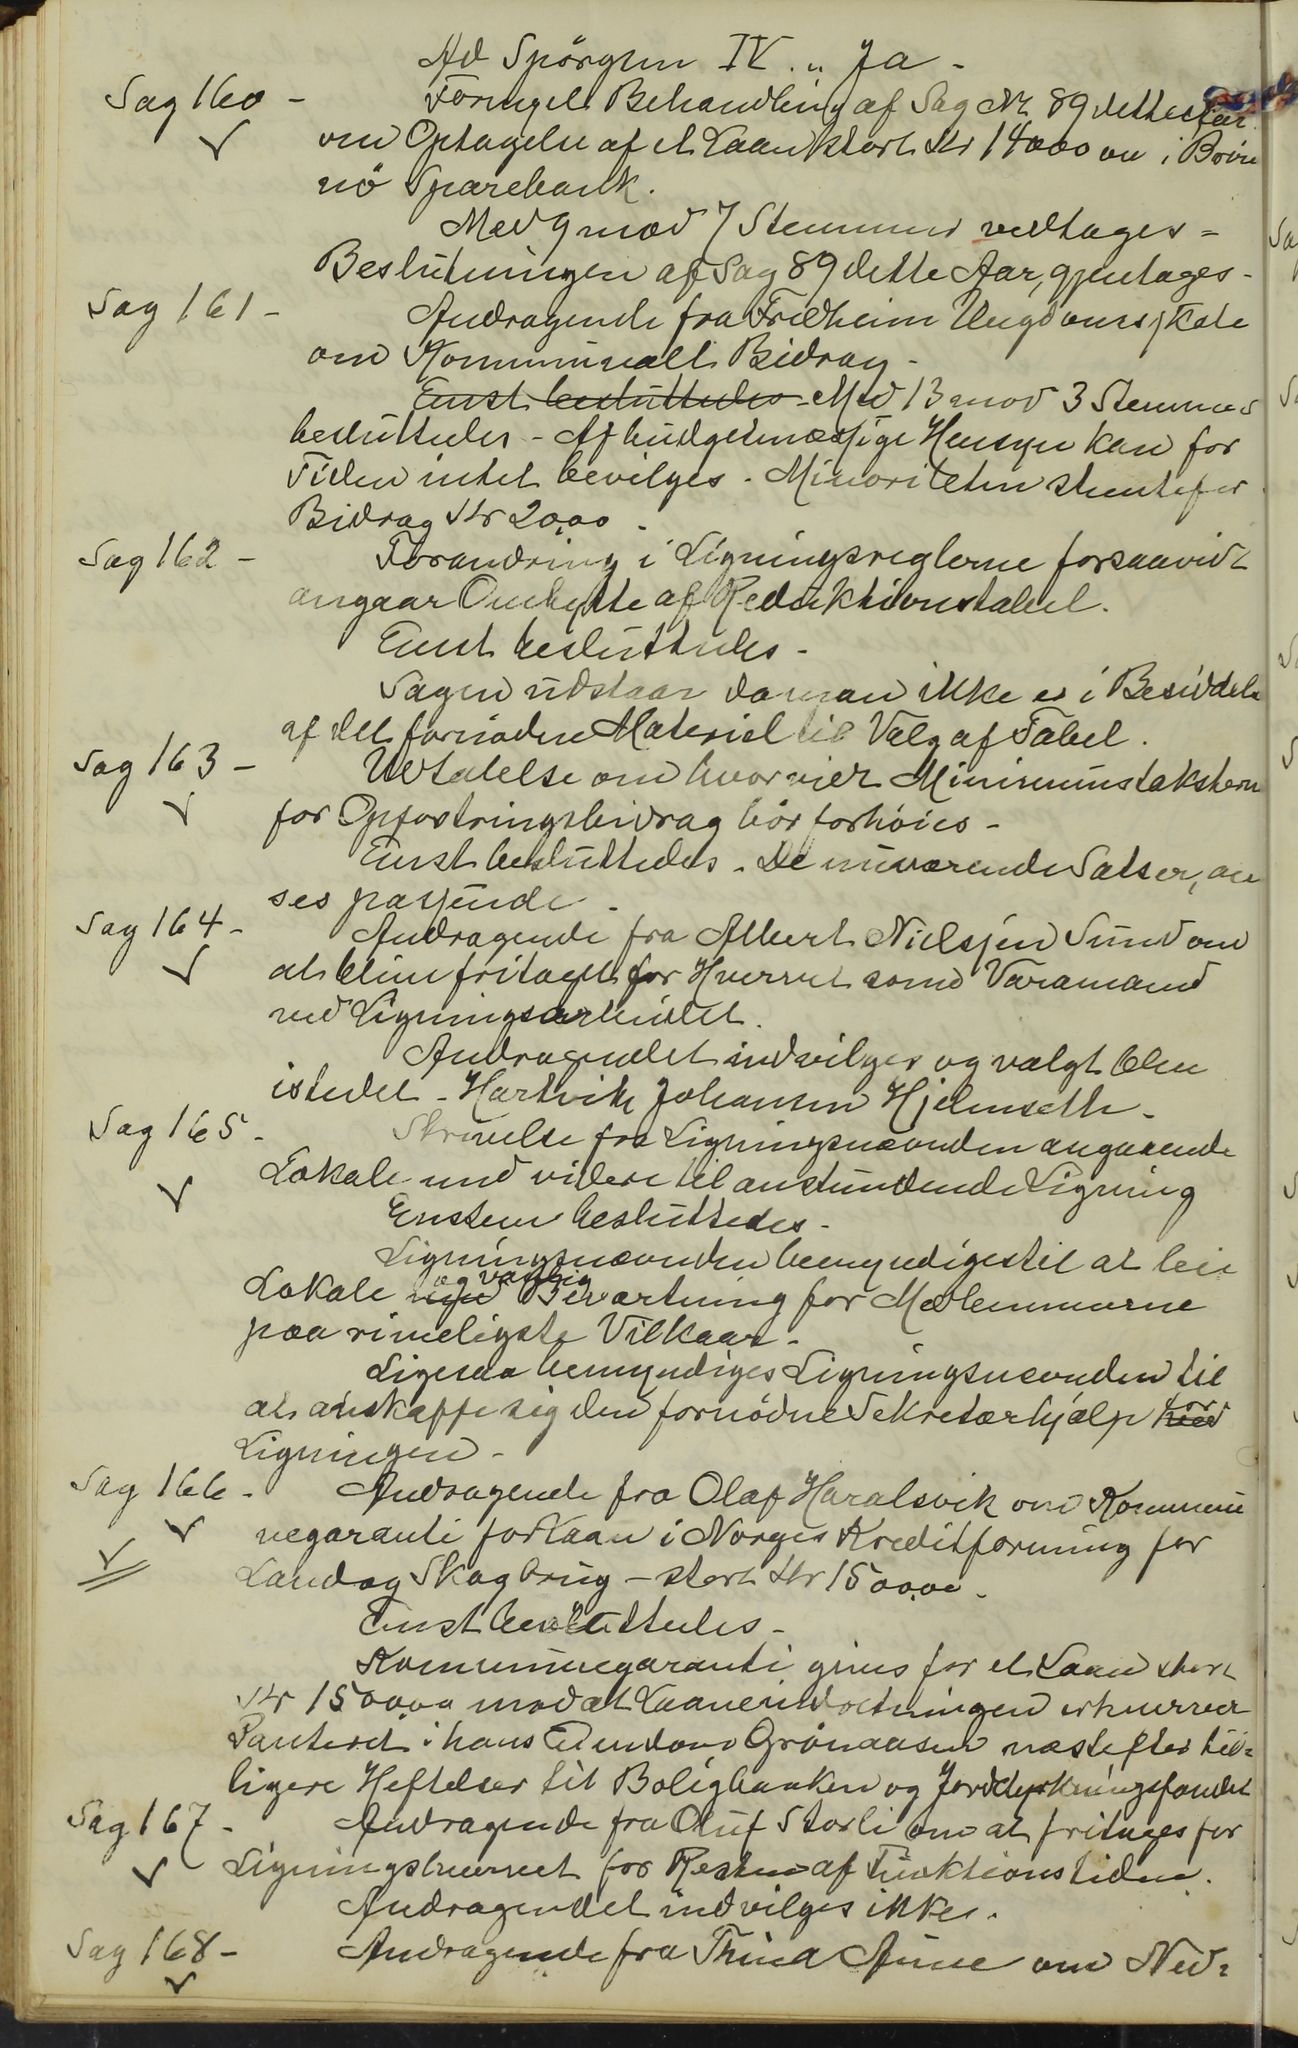 Ad Spörgsm IV. " Ja -
Sag 160 - Fornyet Behandling af Sag Nr 89 dette Aar
om Optagelse af et Laan stort Kr 14000 oo i Brön
nö Sparebank.
Med 9 mod 7 Stemmer vedtages -
Beslutningen af Sag 89 dette Aar, gjentages -
Sag 161 - Andragende fra Fredheim Ungdomsskole
om Kommunalt Bidrag -
Enst besluttedes - Med 13 mod 3 Stemmer
besluttedes - Af budgetmæssige Hensyn kan for
Tiden intet bevilges. Minoriteten stemte for
Bidrag Kr 20,00 -
Sag 162 - Forandring i Ligningsreglerne forsaavidt
angaar Ombytte af Reduktionstabel.
Enst besluttedes -
Sagen udstaar da man ikke er i Besiddelse
af det fornødne Materiel til Valg af Tabel.
Sag 163 - Udtalelse om hvorvidt Minimumstaksterne
for Opfostringsbidrag bör forhöies -
Enst besluttedes. De nuværende Satser, an
ses passende -
Sag 164 - Andragende fra Albert Nielssen Sund om
at blive fritaget for Hvervet som Varamand
ved Ligningsarbeidet.
Andragendet indvilges og valgt blev
istedet - Hartvik Johansen Hjelmseth -
Sag 165 - Skrivelse fra Ligningsnævnden angaaende
Lokale med videre til anstundende Ligning
Enstem besluttedes -
Ligningsnævnden bemyndiges til at leie
Lokale med og Beværtning for Medlemmerne
paa rimeligste Vilkaar -
Ligesaa bemyndiges Ligningsnævnden til
at anskaffe sig den fornödne Sekretærhjælp ved for
Ligningen -
Sag 166 - Andragende fra Olaf Haralsvik om Kommu
negaranti for Laan i Norges Kreditforening for
Land og Skogbrug - stort Kr 1500,00 -
Enst besluttedes -
Kommunegaranti gives for et Laan stort
Kr 1500,00 mod at Laaneindretningen erhverver
Panteret i hans Eiendom Grönaasen næstefter tid-
ligere Heftelser til Boligbanken og Jorddyrkningsfondet
Sag 167 - Andragende fra Oluf Storli om at fritages for
Ligningshvervet for Resten af Funktionstiden.
Andragendet indvilges ikke.
Sag 168 - Andragende fra Thina Aune om Ned-